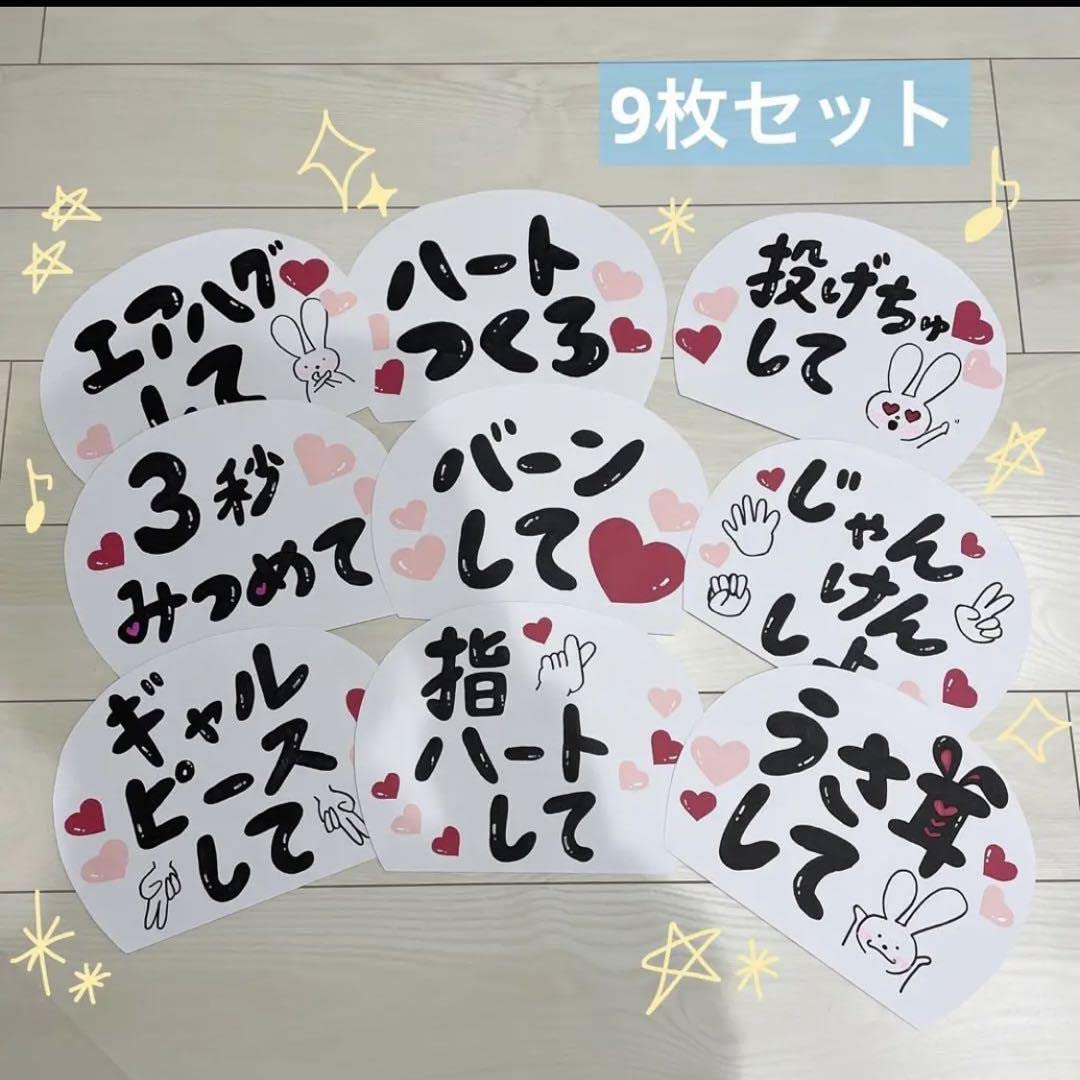 9枚セット
エアハグ
して
ハート
つくろ
投げちゅ
して
3秒
みつめて
バーン
して
じゃん
けん
しよ
ギャル
ピース
して
指
ハート
して
うさ耳
して